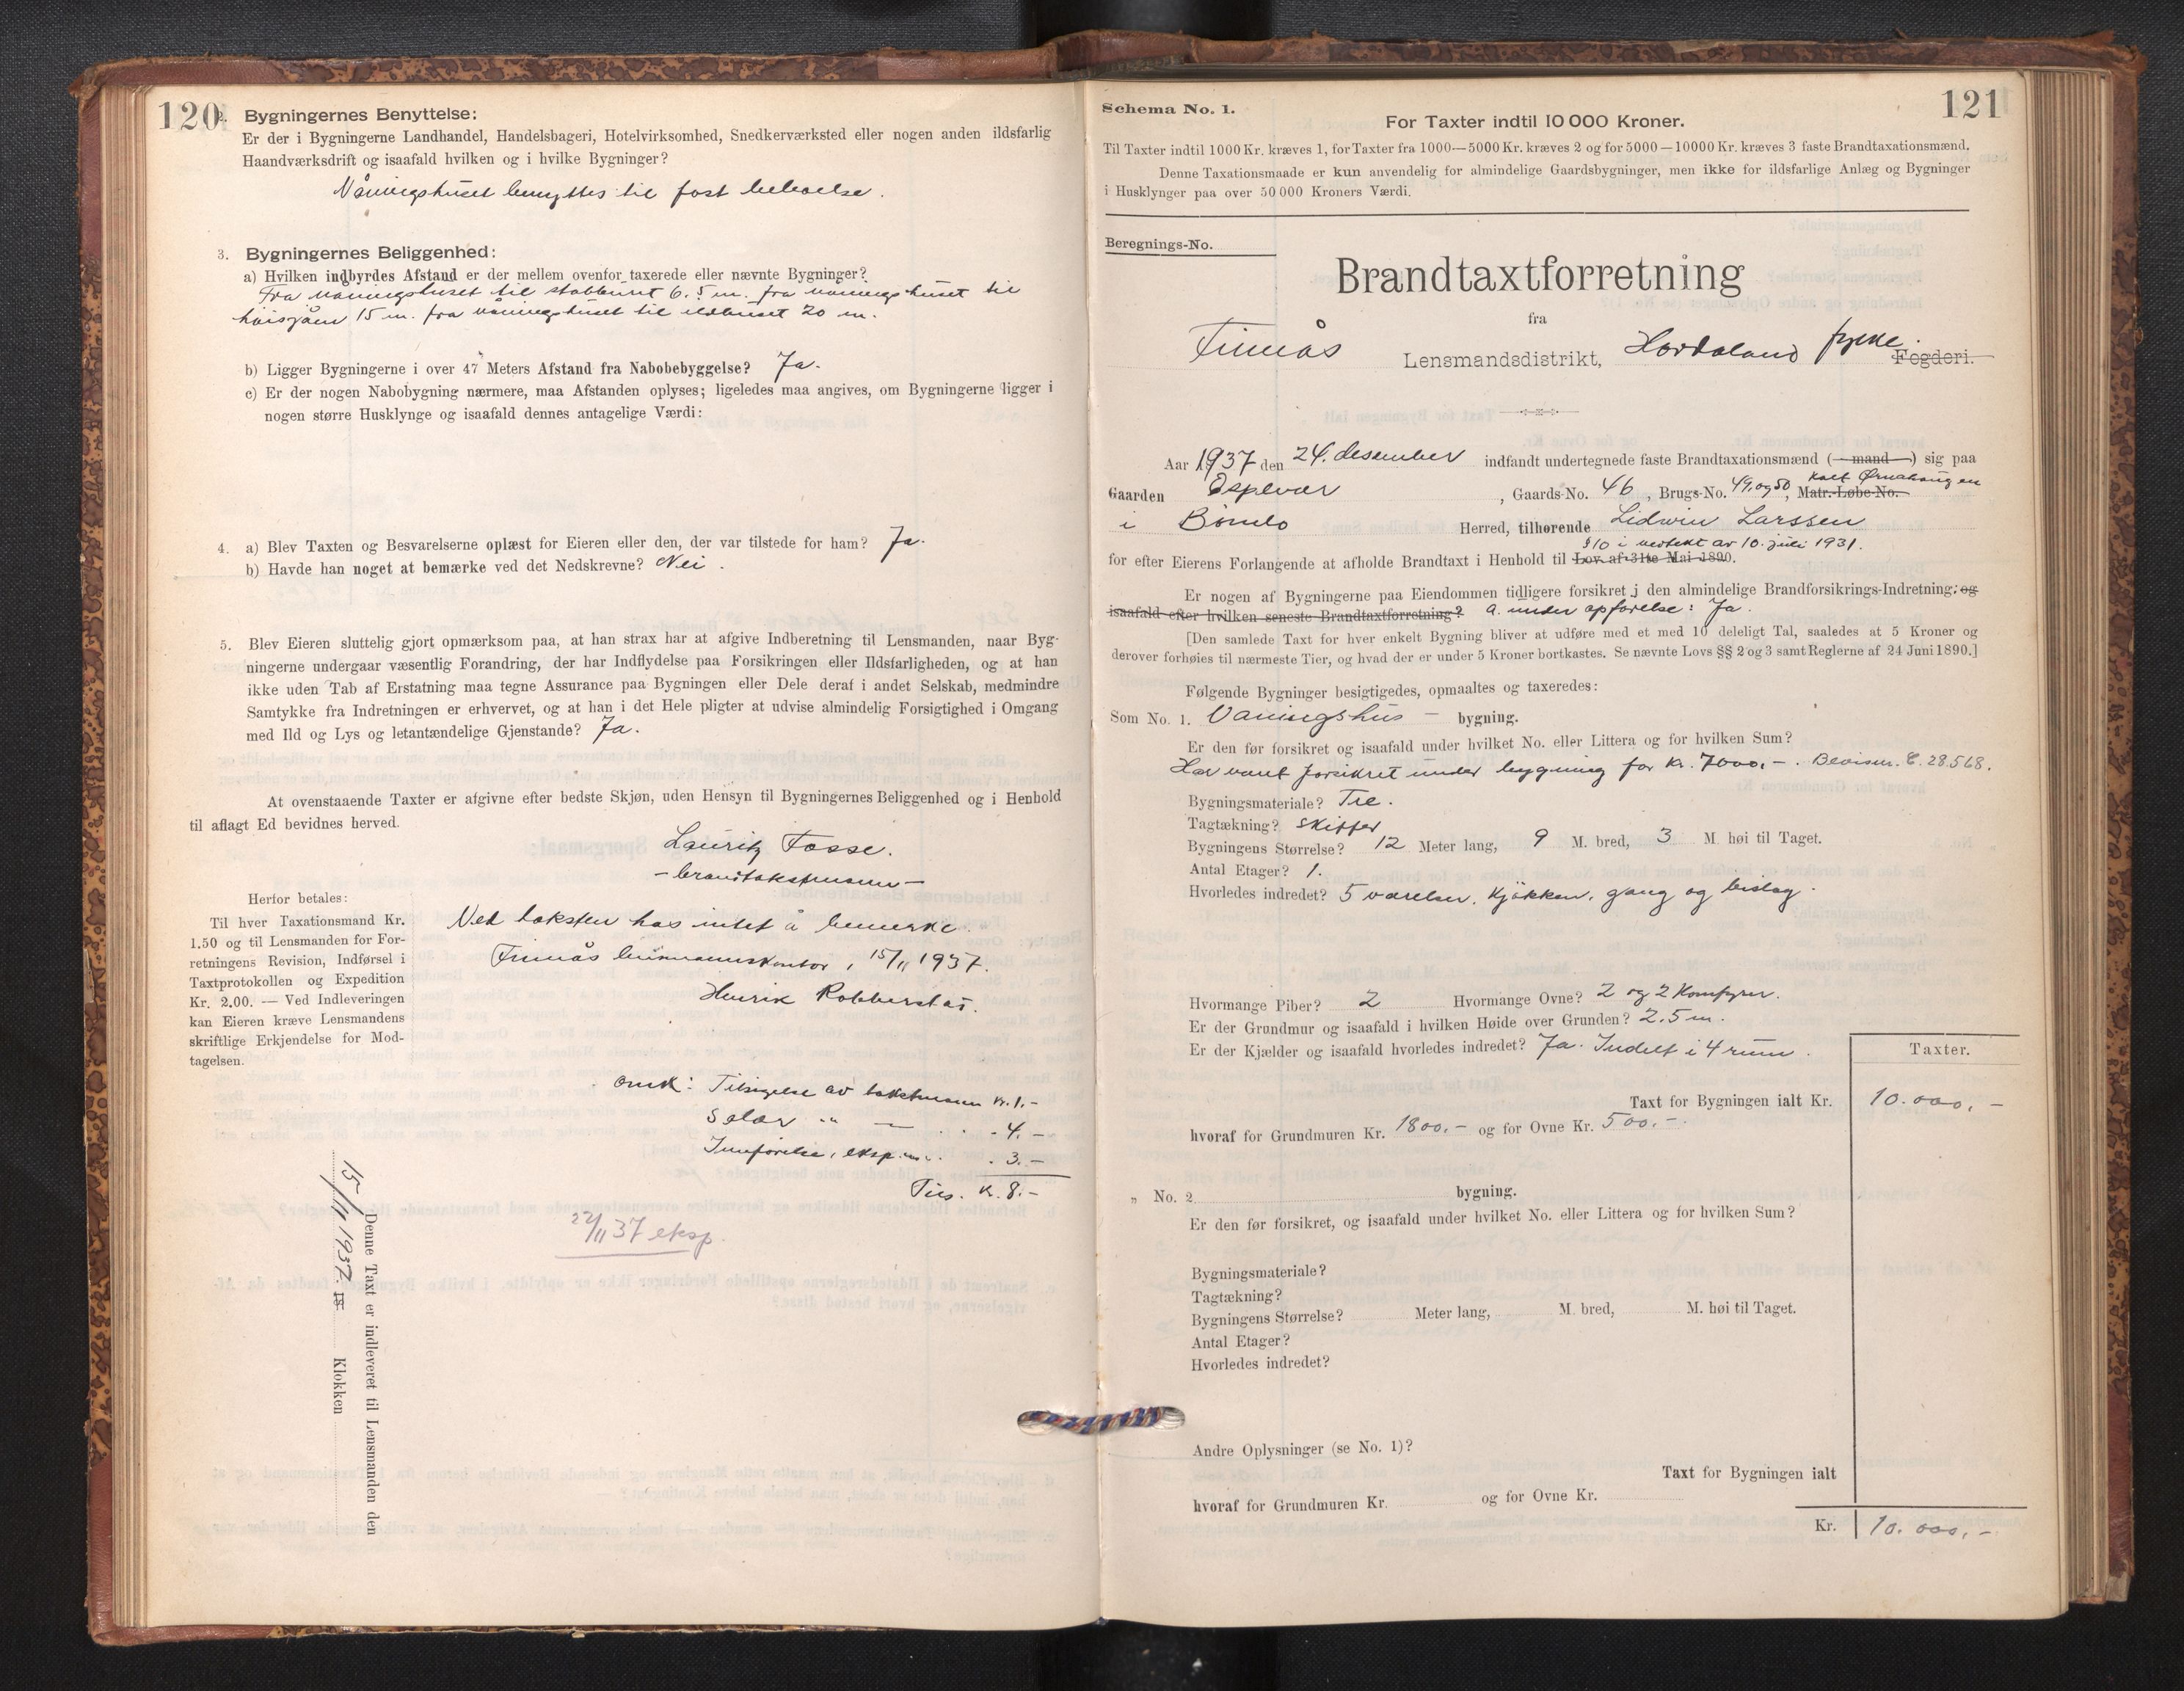 120
2. Bygningernes Benyttelse:
Er der i Bygningerne Landhandel, Handelsbageri, Hotelvirksomhed, Snedkerværksted eller nogen anden ildsfarlig
Haandværksdrift og isaafald hvilken og i hvilke Bygninger?
Våningshuset benyttes til fast beboelse.
3. Bygningernes Beliggenhed:
a) Hvilken indbyrdes Afstand er der mellem ovenfor taxerede eller nævnte Bygninger?
Fra våningshuset til stabburet 6.5 m. fra våningshuset til
15 m. fra våningshuset til eldhuset 20 m.
b) Ligger Bygningerne i over 47 Meters Afstand fra Nabobebyggelse? Ja.
c) Er der nogen Nabobygning nærmere, maa Afstanden oplyses; ligeledes maa angives, om Bygningerne ligger i
nogen større Husklynge og isaafald dennes antagelige Værdi:
4. a) Blev Taxten og Besvarelserne oplæst for Eieren eller den, der var tilstede for ham? Ja.
b) Havde han noget at bemærke ved det Nedskrevne? Nei.
5. Blev Eieren sluttelig gjort opmærksom paa, at han strax har at afgive Indberetning til Lensmanden, naar Byg-
ningerne undergaar væsentlig Forandring, der har Indflydelse paa Forsikringen eller Ildsfarligheden, og at han
ikke uden Tab af Erstatning maa tegne Assurance paa Bygningen eller Dele deraf i andet Selskab, medmindre
Samtykke fra Indretningen er erhvervet, og at han i det Hele pligter at udvise almindelig Forsigtighed i Omgang
med Ild og Lys og letantændelige Gjenstande? Ja.
At ovenstaaende Taxter er afgivne efter bedste Skjøn, uden Hensyn til Bygningernes Beliggenhed og i Henhold
til aflagt Ed bevidnes herved.
Lauritz Fosse.
- branntakstmann -
Herfor betales:
Til hver Taxationsmand Kr.
1.50 og til Lensmanden for For-
retningens Revision, Indførsel i
Taxtprotokollen og Expedition
Kr. 2.00. — Ved Indleveringen
kan Eieren kræve Lensmandens
skriftlige Erkjendelse for Mod-
tagelsen.
Ved taksten has intet å bemerke.
Finnås lensmannskontor, 15/11 1937.
Henrik Robberstad.
Omk: Tilsigelse av takstmann kr. 1.-
Salær " — - 4.-
Innførelse, eksp. m.v. - 3.-
Tils. kr. 8.-
22/11 37 eksp.
Denne Taxt er indleveret til Lensmanden den
15/11 1937. 18 Klokken
121
Schema No. 1.
For Taxter indtil 10 000 Kroner.
Til Taxter indtil 1000 Kr. kræves 1, for Taxter fra 1000—5000 Kr. kræves 2 og for 5000—10000 Kr. kræves 3 faste Brandtaxationsmænd.
Denne Taxationsmaade er kun anvendelig for almindelige Gaardsbygninger, men ikke for ildsfarlige Anlæg og Bygninger
i Husklynger paa over 50 000 Kroners Værdi.
Beregnings-No.
Brandtaxtforretning
fra
Finnås Lensmandsdistrikt, Hordaland fylke. Fogderi.
Aar 1937 den 24. desember indfandt undertegnede faste Brandtaxationsmænd (mand) sig paa
Gaarden Espevær, Gaards-No. 46, Brugs-No. 49. og 50, Matr.-Løbe-No. kalt Ørnehaugen
i Bømlo Herred, tilhørende Lidvin Larssen
§10 i vedtekt av 10. juli 1931.
for efter Eierens Forlangende at afholde Brandtaxt i Henhold til Lov af 31te Mai 1890.
Er nogen af Bygningerne paa Eiendommen tidligere forsikret i den almindelige Brandforsikrings-Indretning: og
isaafald efter hvilken seneste Brandtaxtforretning? a. under opførelse: Ja.
[Den samlede Taxt for hver enkelt Bygning bliver at udføre med et med 10 deleligt Tal, saaledes at 5 Kroner og
derover forhøies til nærmeste Tier, og hvad der er under 5 Kroner bortkastes. Se nævnte Lovs §§ 2 og 3 samt Reglerne af 24 Juni 1890.]
Følgende Bygninger besigtigedes, opmaaltes og taxeredes:
Som No. 1. Våningshus - bygning.
Er den før forsikret og isaafald under hvilket No. eller Littera og for hvilken Sum?
Har vært forsikret under bygning for kr. 7000,-. Bevisnr. C. 28.568.
Bygningsmateriale? Tre.
Tagtækning? Skiffer
Bygningens Størrelse? 12 Meter lang, 9 M. bred, 3 M. høi til Taget.
Antal Etager? 1.
Hvorledes indredet? 5 værelser, kjøkken, gang og bislag.
Hvormange Piber? 2 Hvormange Ovne? 2 og 2 Komfyrer.
Er der Grundmur og isaafald i hvilken Høide over Grunden? 2.5 m.
Er der Kjælder og isaafald hvorledes indredet? Ja. Indelt i 4 rum.
Taxter.
Taxt for Bygningen ialt Kr. 10.000,-
hvoraf for Grundmuren Kr. 1800,- og for Ovne Kr. 500,-.
" No. 2 bygning.
Er den før forsikret, og isaafald under hvilket No. eller Littera og for hvilken Sum?
Bygningsmateriale?
Tagtækning?
Bygningens Størrelse? Meter lang, M. bred, M. høi til Taget.
Antal Etager?
Hvorledes indredet?
Andre Oplysninger (se No. 1)?
Taxt for Bygningen ialt
hvoraf for Grundmuren Kr. og for Ovne Kr.
Kr. 10.000,-